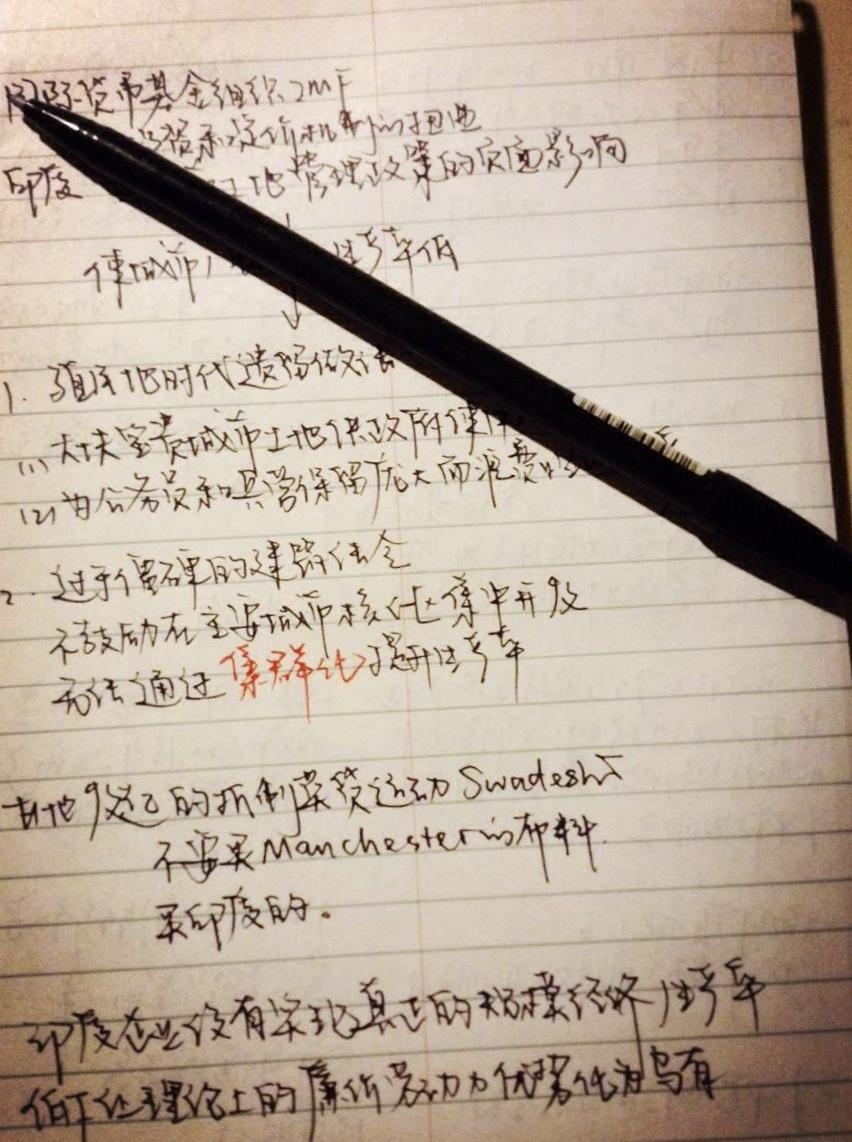 国际货币基金组织 IMF
投资和定价机制的扭曲
印度 土地管理政策的负面影响
使城市 生产率低
↓
1. 殖民地时代遗留做法
(1) 大块宝贵城市土地供政府使用
(2) 为公务员和兵营保留庞大而浪费
2. 过于僵硬的建筑法令
不鼓励在主要城市核心区集中开发
无法通过集群化提升生产率
甘地发起的抵制英货运动 Swadeshi
不要买Manchester的布料.
买印度的。
印度企业没有实现真正的规模经济 生产率
低下让理论上的廉价劳动力优势化为乌有